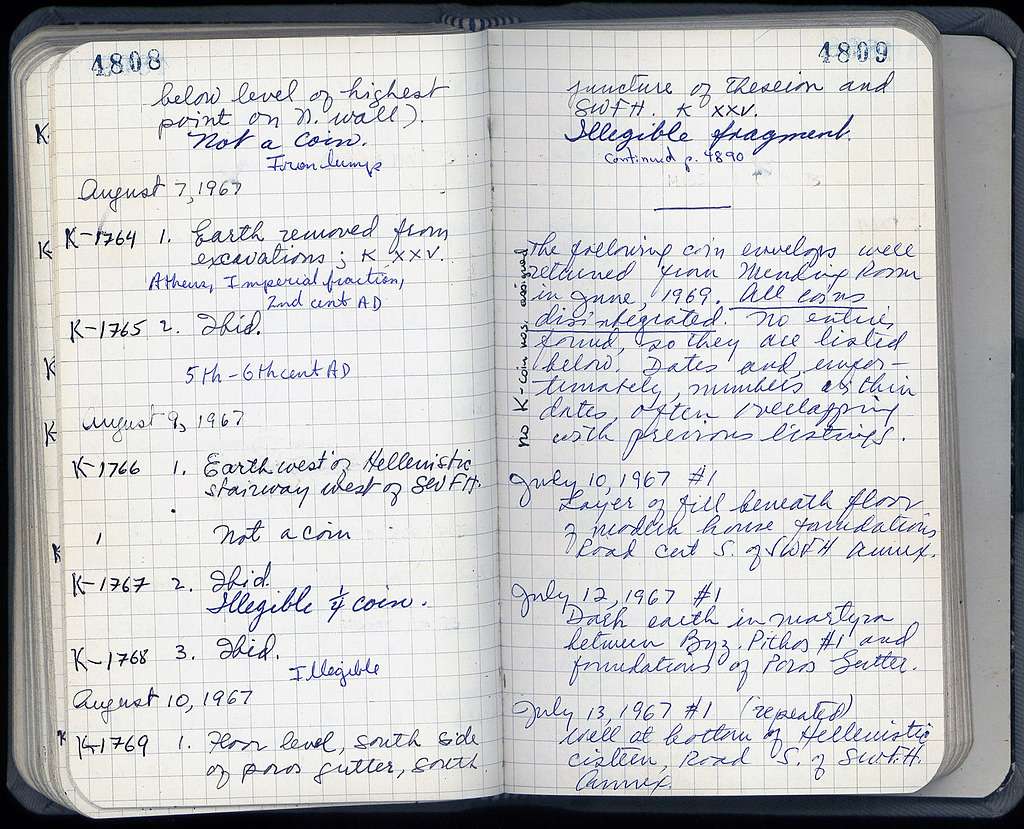 4808
below level of highest
point on N. wall).
Not a coin.
Iron lump
August 7, 1967
K-1764 1. Earth removed from
excavations; K XXV.
Athens, Imperial fraction,
2nd cent AD
K-1765 2. Ibid.
5th-6th cent AD
August 9, 1967
K-1766 1. Earth west of Hellenistic
stairway west of SWFH.
1 Not a coin
K-1767 2. Ibid.
Illegible 1/4 coin.
K-1768 3. Ibid.
Illegible
August 10, 1967
K-1769 1. Floor level, south side
of poros gutter, south
K
K
K
K
K
K
4809
juncture of Theseion and
SWFH. K XXV.
Illegible fragment.
Continued p. 4890
no K-coin nos. assigned
The following coin envelops were
returned from Mending Room
in June, 1969. All coins
disintegrated. No entries
found, so they are listed
below. Dates and unfor-
tunately, numbers within
dates, often overlapping
with previous listings.
July 10, 1967 #1
Layer of fill beneath floor
of modern house foundations
Road cut S. of SWFH Annex.
July 12, 1967 #1
Dark earth in
between Byz. Pithos #1 and
foundations of Poros Gutter.
July 13, 1967 #1 (repeated)
Well at bottom of Hellenistic
cistern, Road S. of SWFH.
Annex.